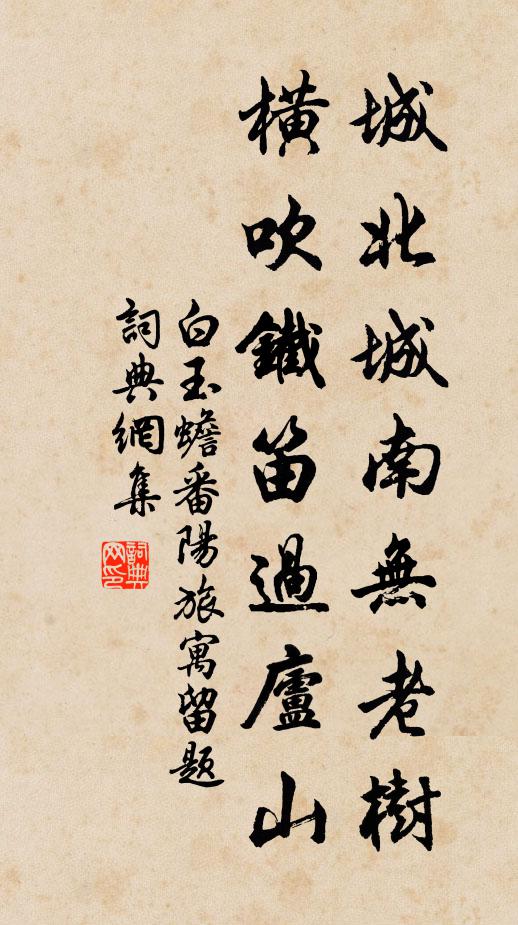 城北城南無老樹
橫吹鐵笛過廬山
白玉蟾番陽旅寓留題
詞典網集
詞典网印